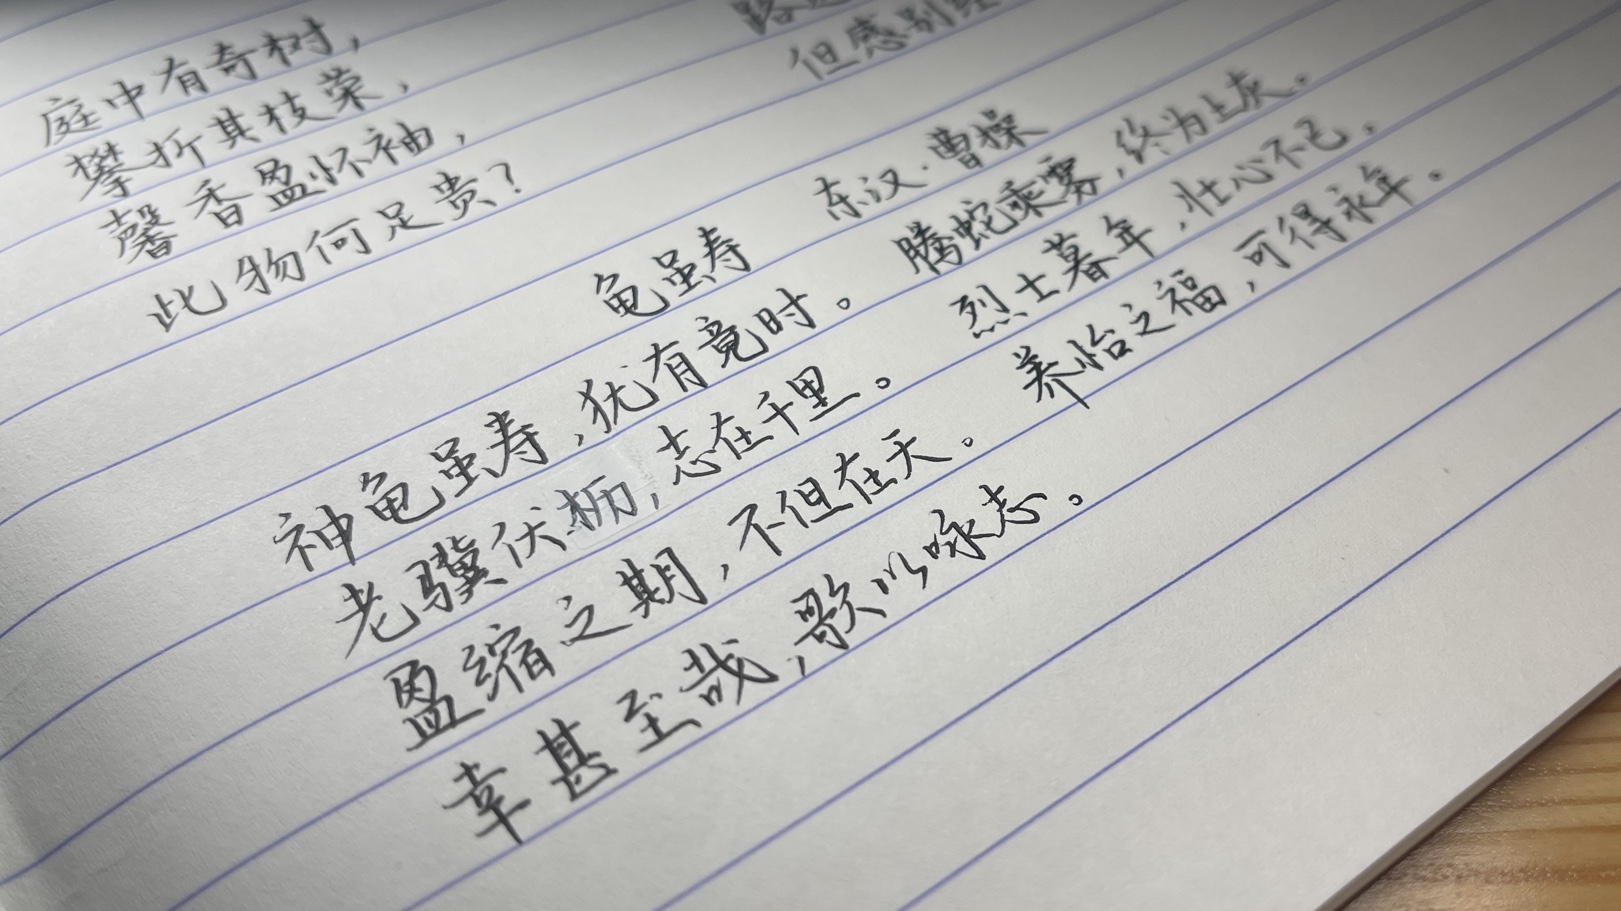 庭中有奇树，
攀折其枝荣，
馨香盈怀袖， 路远
此物何足贵？ 但感别经
龟虽寿 东汉·曹操
神龟虽寿，犹有竟时。 腾蛇乘雾，终为土灰。
老骥伏枥，志在千里。 烈士暮年，壮心不已，
盈缩之期，不但在天。 养怡之福，可得永年。
幸甚至哉，歌以咏志。